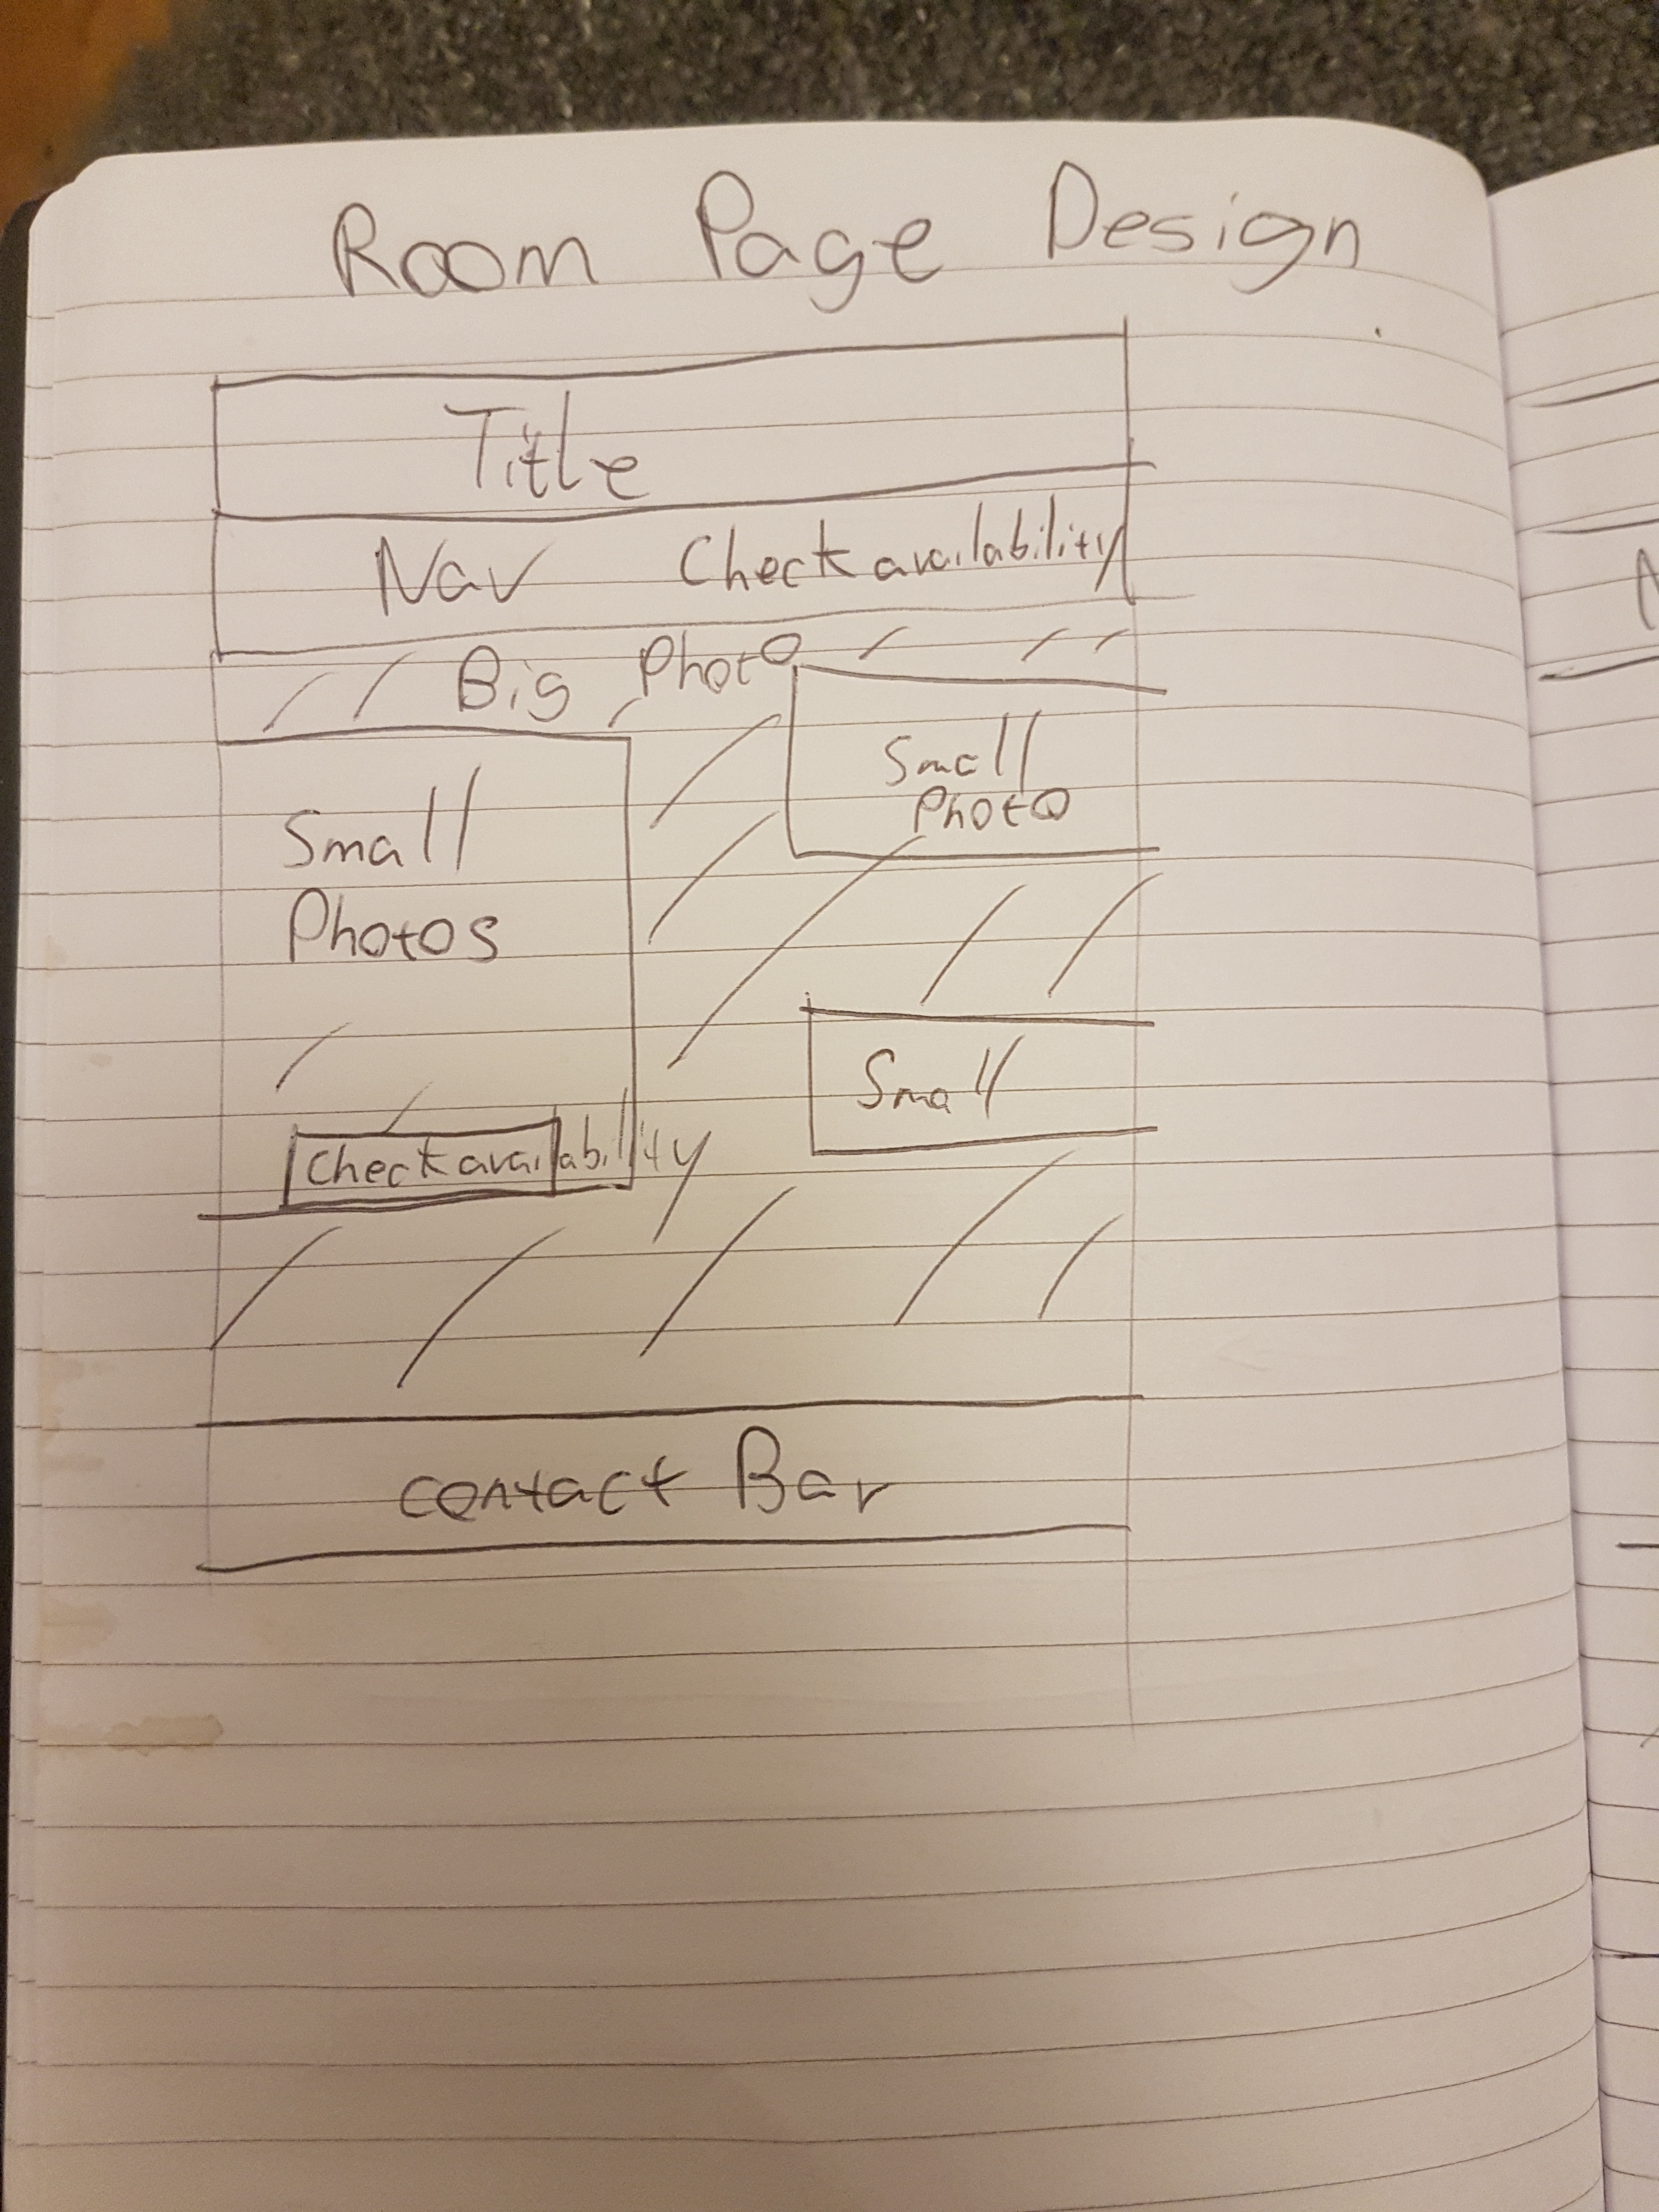 Room Page Design
Title
Nav Check availability
Big Photo
Small
Photo
Small
Photos
Small
Check availability
contact Bar